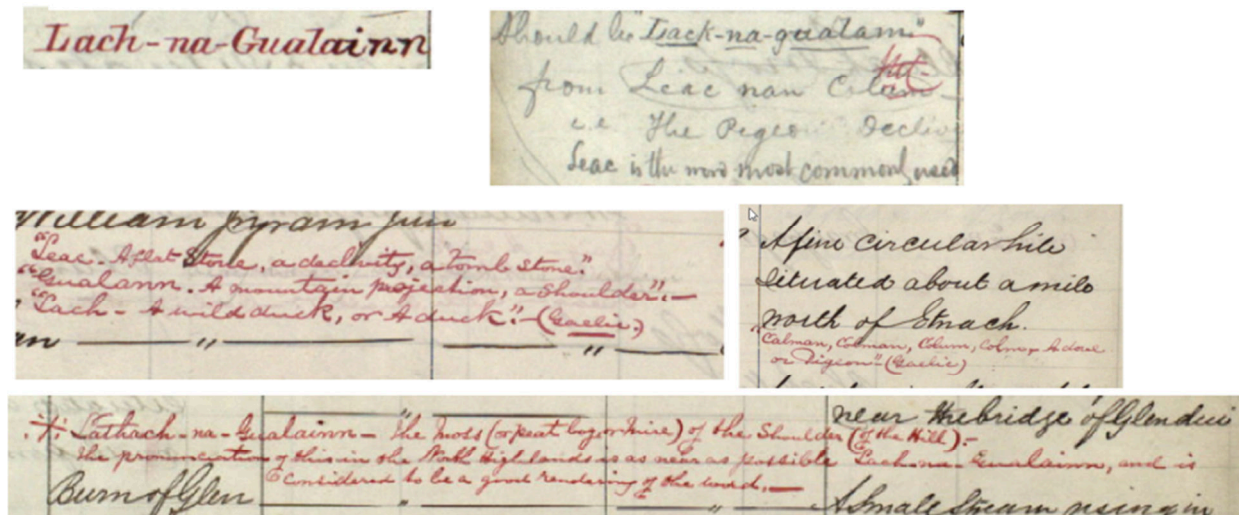 Lach-na-Gualainn
Should be "Lack-na-gualam"
from Leac nan Colum
i.e. The Pigeon Decliv
Leac is the word most commonly used
William jun
"Leac. A flat Stone, a declivity, a tomb stone."
"Gualann. A mountain projection, a shoulder".—
"Lach - A wild duck, or A duck".- (Gaelic.)
A fine circular hill
situated about a mile
north of Etnach.
"Calman, Colman, Colum, Colm, A dove
or Pigeon"- (Gaelic)
near the bridge of Glendui
Lathach-na-Gualainn - The Moss (or peat bog or Mire) of the Shoulder (of the Hill).-
the pronunciation of this in the North Highlands is as near as possible Lach-na-Gualainn, and is
considered to be a good rendering of the word.—
Burn of Glen
A Small Stream rising in